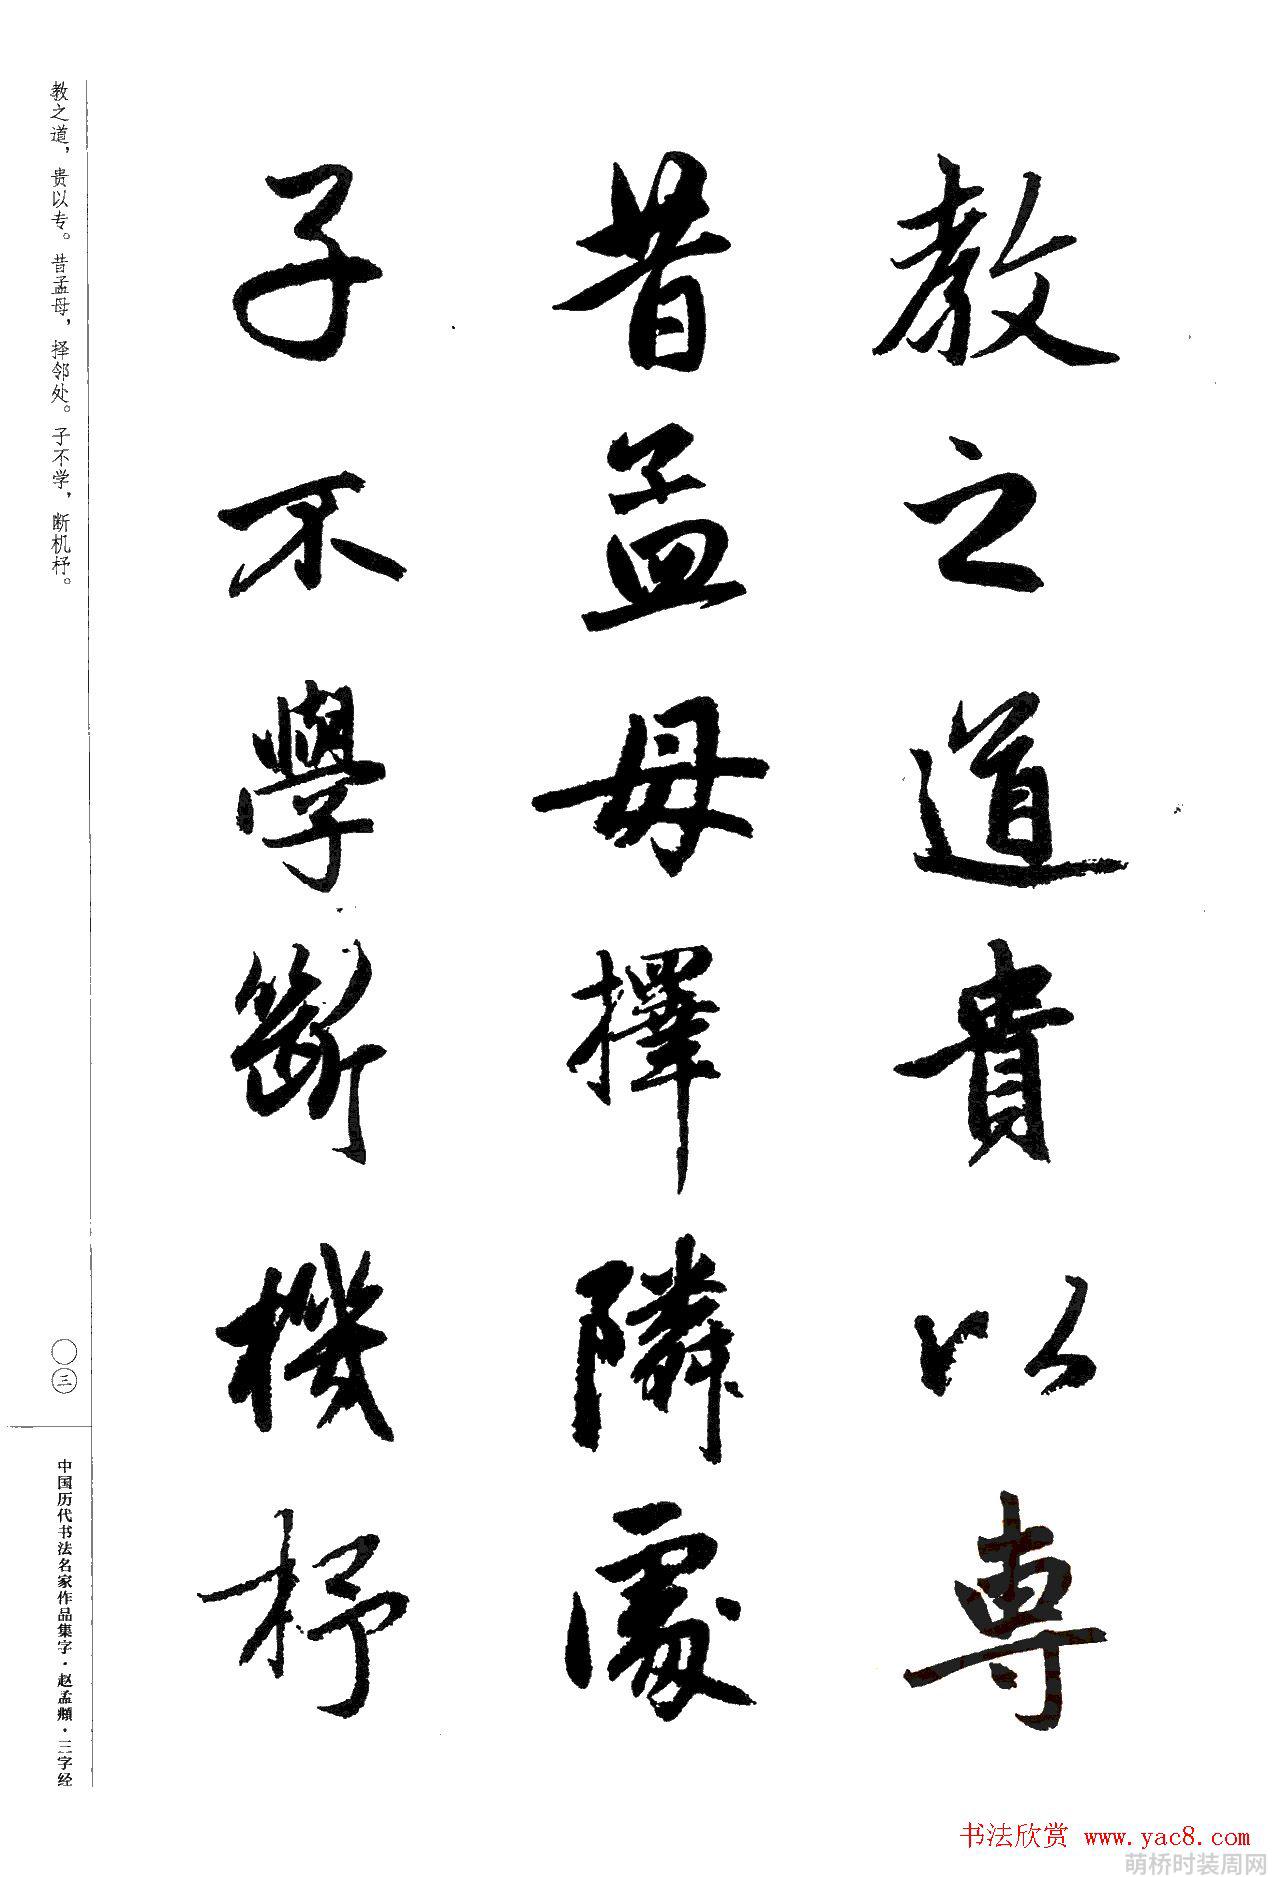 教之道貴以專
昔孟母擇隣處
子不學斷機杼
教之道，贵以专。昔孟母，择邻处。子不学，断机杼。
〇三
中国历代书法名家作品集字·赵孟頫·三字经
书法欣赏 www.yac8.com
萌桥时装周网